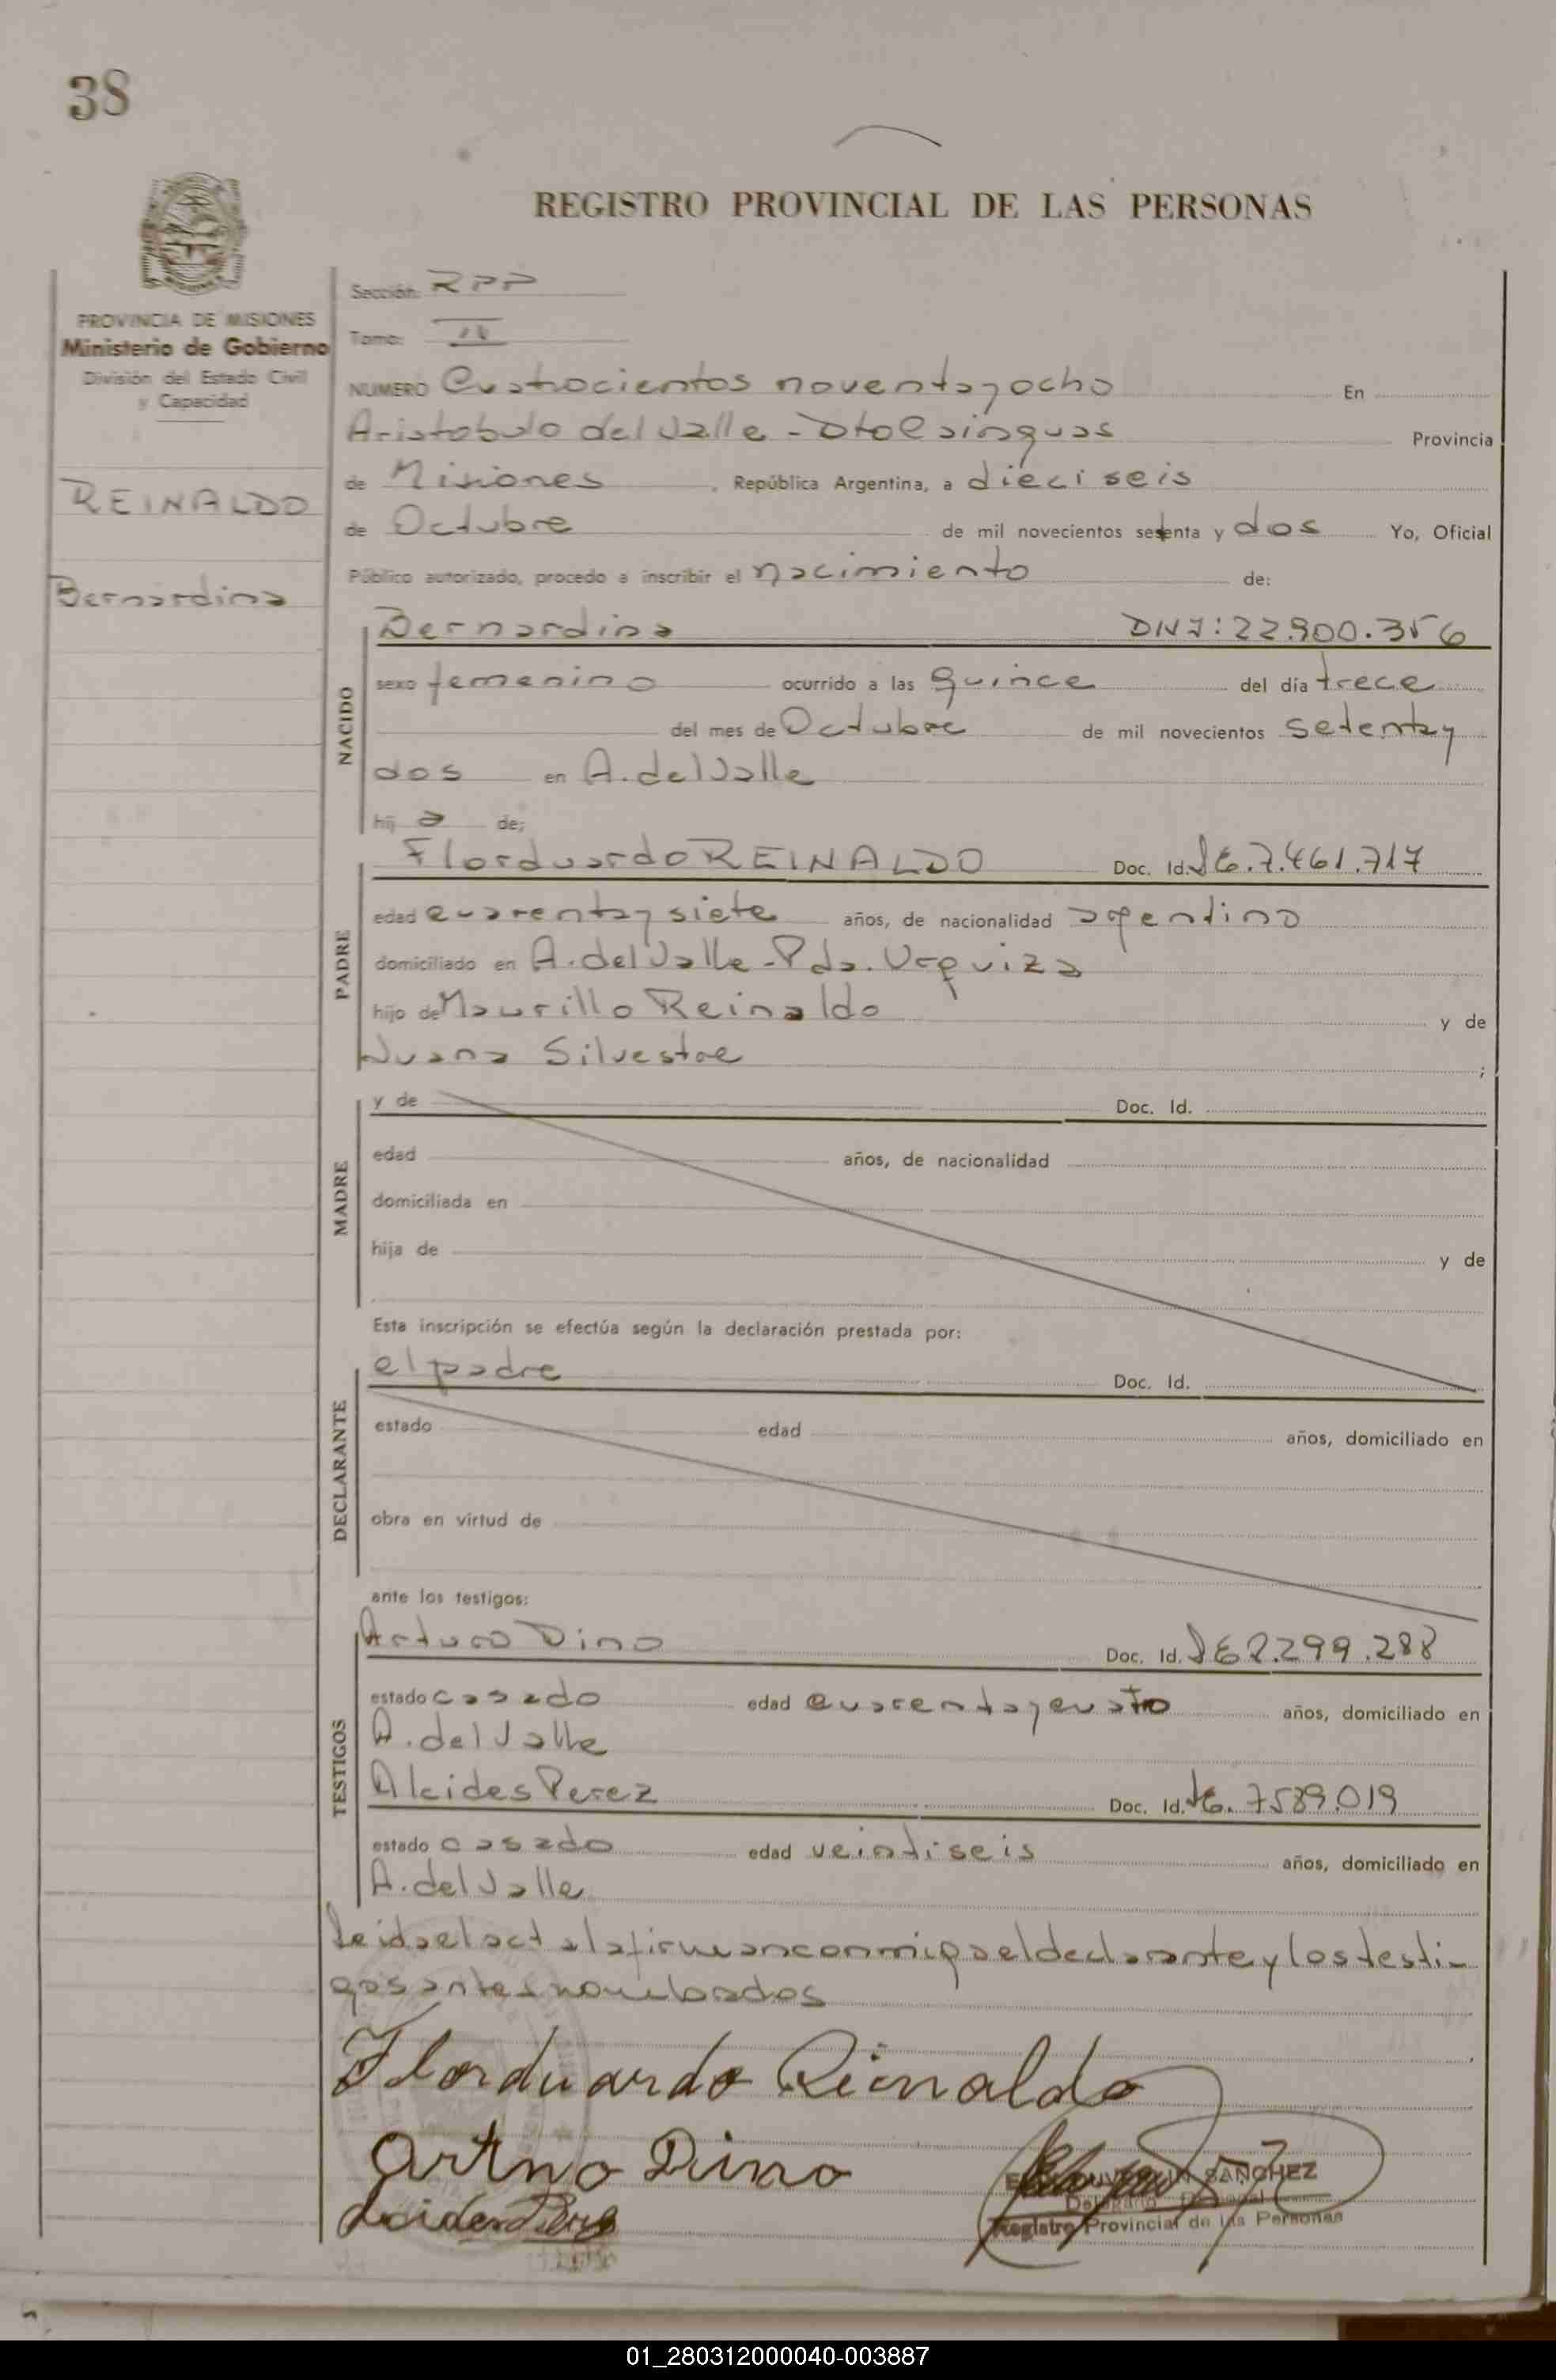 38
REGISTRO PROVINCIAL DE LAS PERSONAS
PROVINCIA DE MISIONES
Ministerio de Gobierno
División del Estado Civil
y Capacidad
REINALDO
Bernardina
Sección: RPP
Tomo:
NUMERO Cuatrocientos noventa y ocho En
Aristobulo del Valle - Dto Cainguas Provincia
de Misiones , República Argentina, a dieciseis
de Octubre de mil novecientos setenta y dos Yo, Oficial
Público autorizado, procedo a inscribir el nacimiento de:
NACIDO
Bernardina DNI: 22.900.356
sexo femenino ocurrido a las quince del día trece
del mes de Octubre de mil novecientos setenta y
dos en A. del Valle
hij a de;
PADRE
Florduardo REINALDO Doc. Id. 7.461.717
edad cuarenta y siete años, de nacionalidad argentino
domiciliado en A. del Valle - Pda. Urquiza
hijo de Maurillo Reinaldo y de
Juana Silvestre ;
MADRE
y de Doc. Id.
edad años, de nacionalidad
domiciliada en
hija de y de
Esta inscripción se efectúa según la declaración prestada por:
DECLARANTE
el padre Doc. Id.
estado edad años, domiciliado en
obra en virtud de
ante los testigos:
TESTIGOS
Arturo Dino Doc. Id. .299.288
estado casado edad cuarenta y cuatro años, domiciliado en
A. del Valle
Alcides Perez Doc. Id. 7589.019
estado casado edad veintiseis años, domiciliado en
A. del Valle
Leida el acta la firman conmigo el declarante y los testi-
gos antes nombrados
Florduardo Reinaldo
Arturo Dino
Alcides Perez
SANCHEZ
Registro Provincial de las Personas
01_280312000040-003887